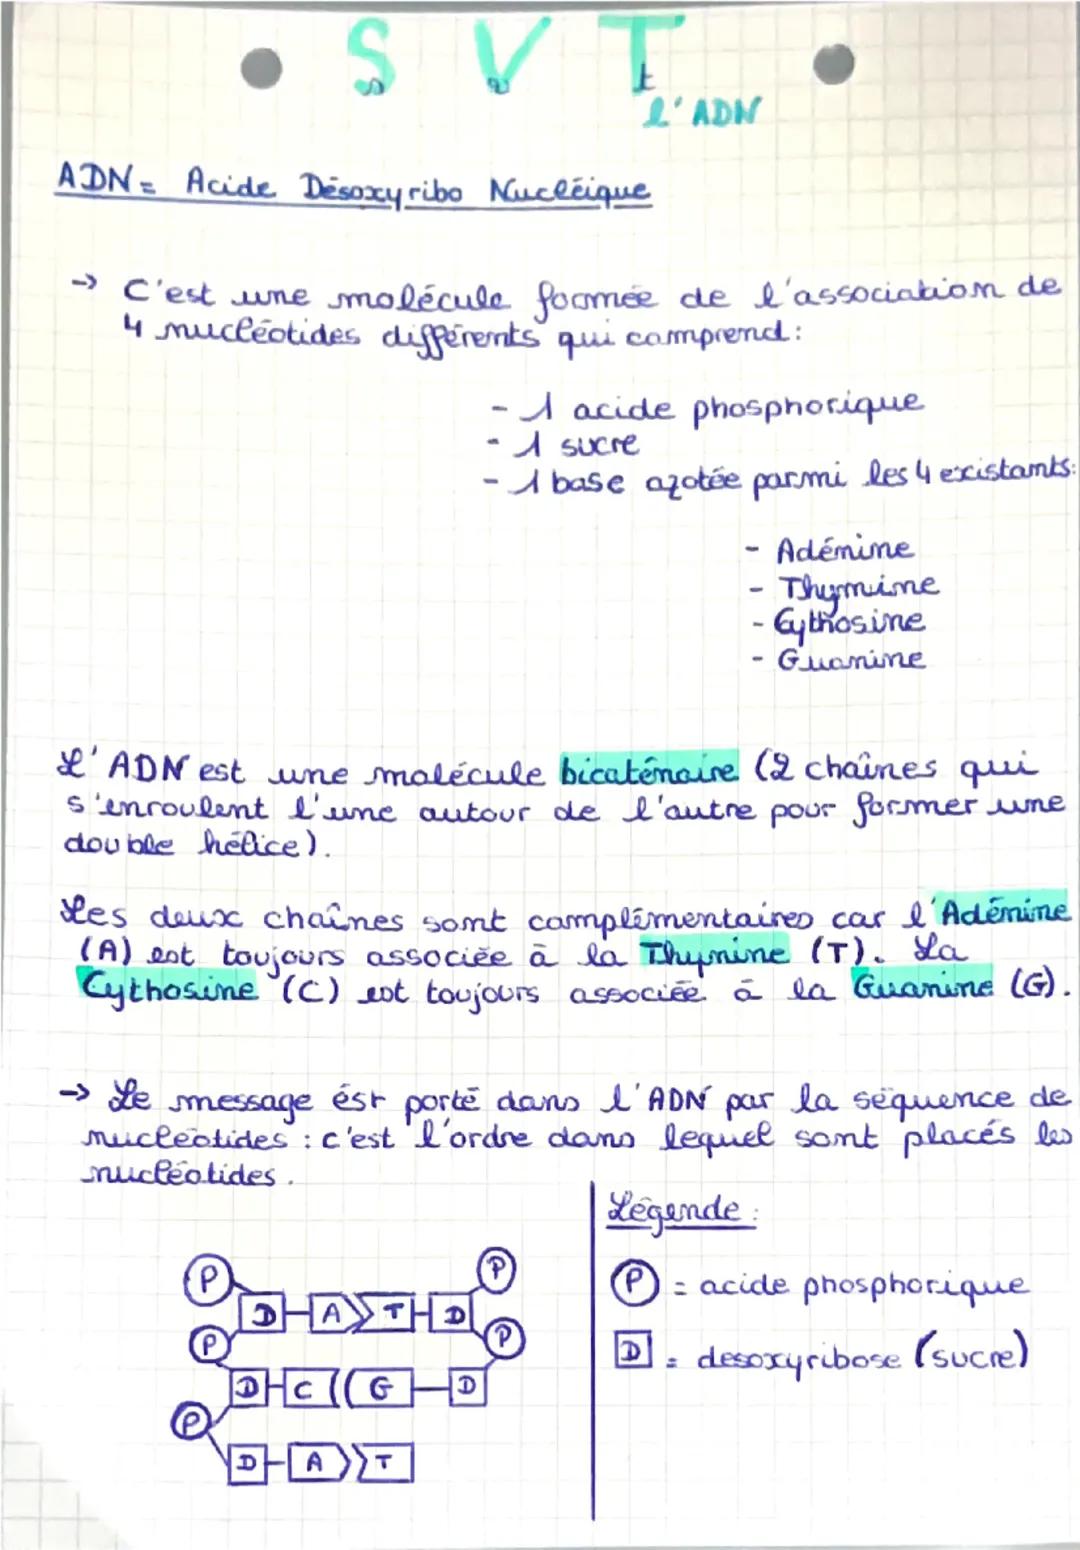 S V T
s v t
l'ADN
ADN = Acide Désoxyribo Nucléique
-> C'est une molécule formée de l'association de
4 nucléotides différents qui comprend :
- 1 acide phosphorique
- 1 sucre
- 1 base azotée parmi les 4 existants :
- Adénine
- Thymine
- Cythosine
- Guanine
L'ADN est une molécule bicaténaire (2 chaînes qui
s'enroulent l'une autour de l'autre pour former une
double hélice).
Les deux chaînes sont complémentaires car l'Adénine
(A) est toujours associée à la Thymine (T). La
Cythosine (C) est toujours associée à la Guanine (G).
-> Le message ést porté dans l'ADN par la séquence de
nucléotides : c'est l'ordre dans lequel sont placés les
nucléotides.
Légende :
P = acide phosphorique
D = desoxyribose (sucre)
P P
D A T D
P P
D C G D
P
D A T